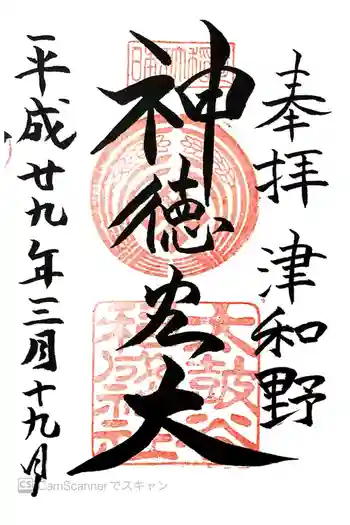 奉拝 津和野
神徳宏大
平成廿九年三月十九日
太鼓谷
稲成
CS CamScannerでスキャン